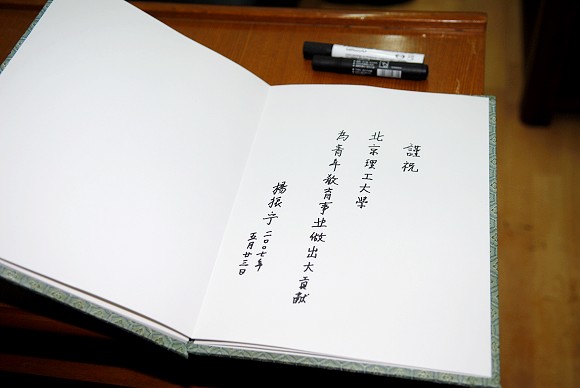 謹祝
北京理工大学
為青年教育事业做出大貢献
楊振宁
二〇〇七年
五月廿三日